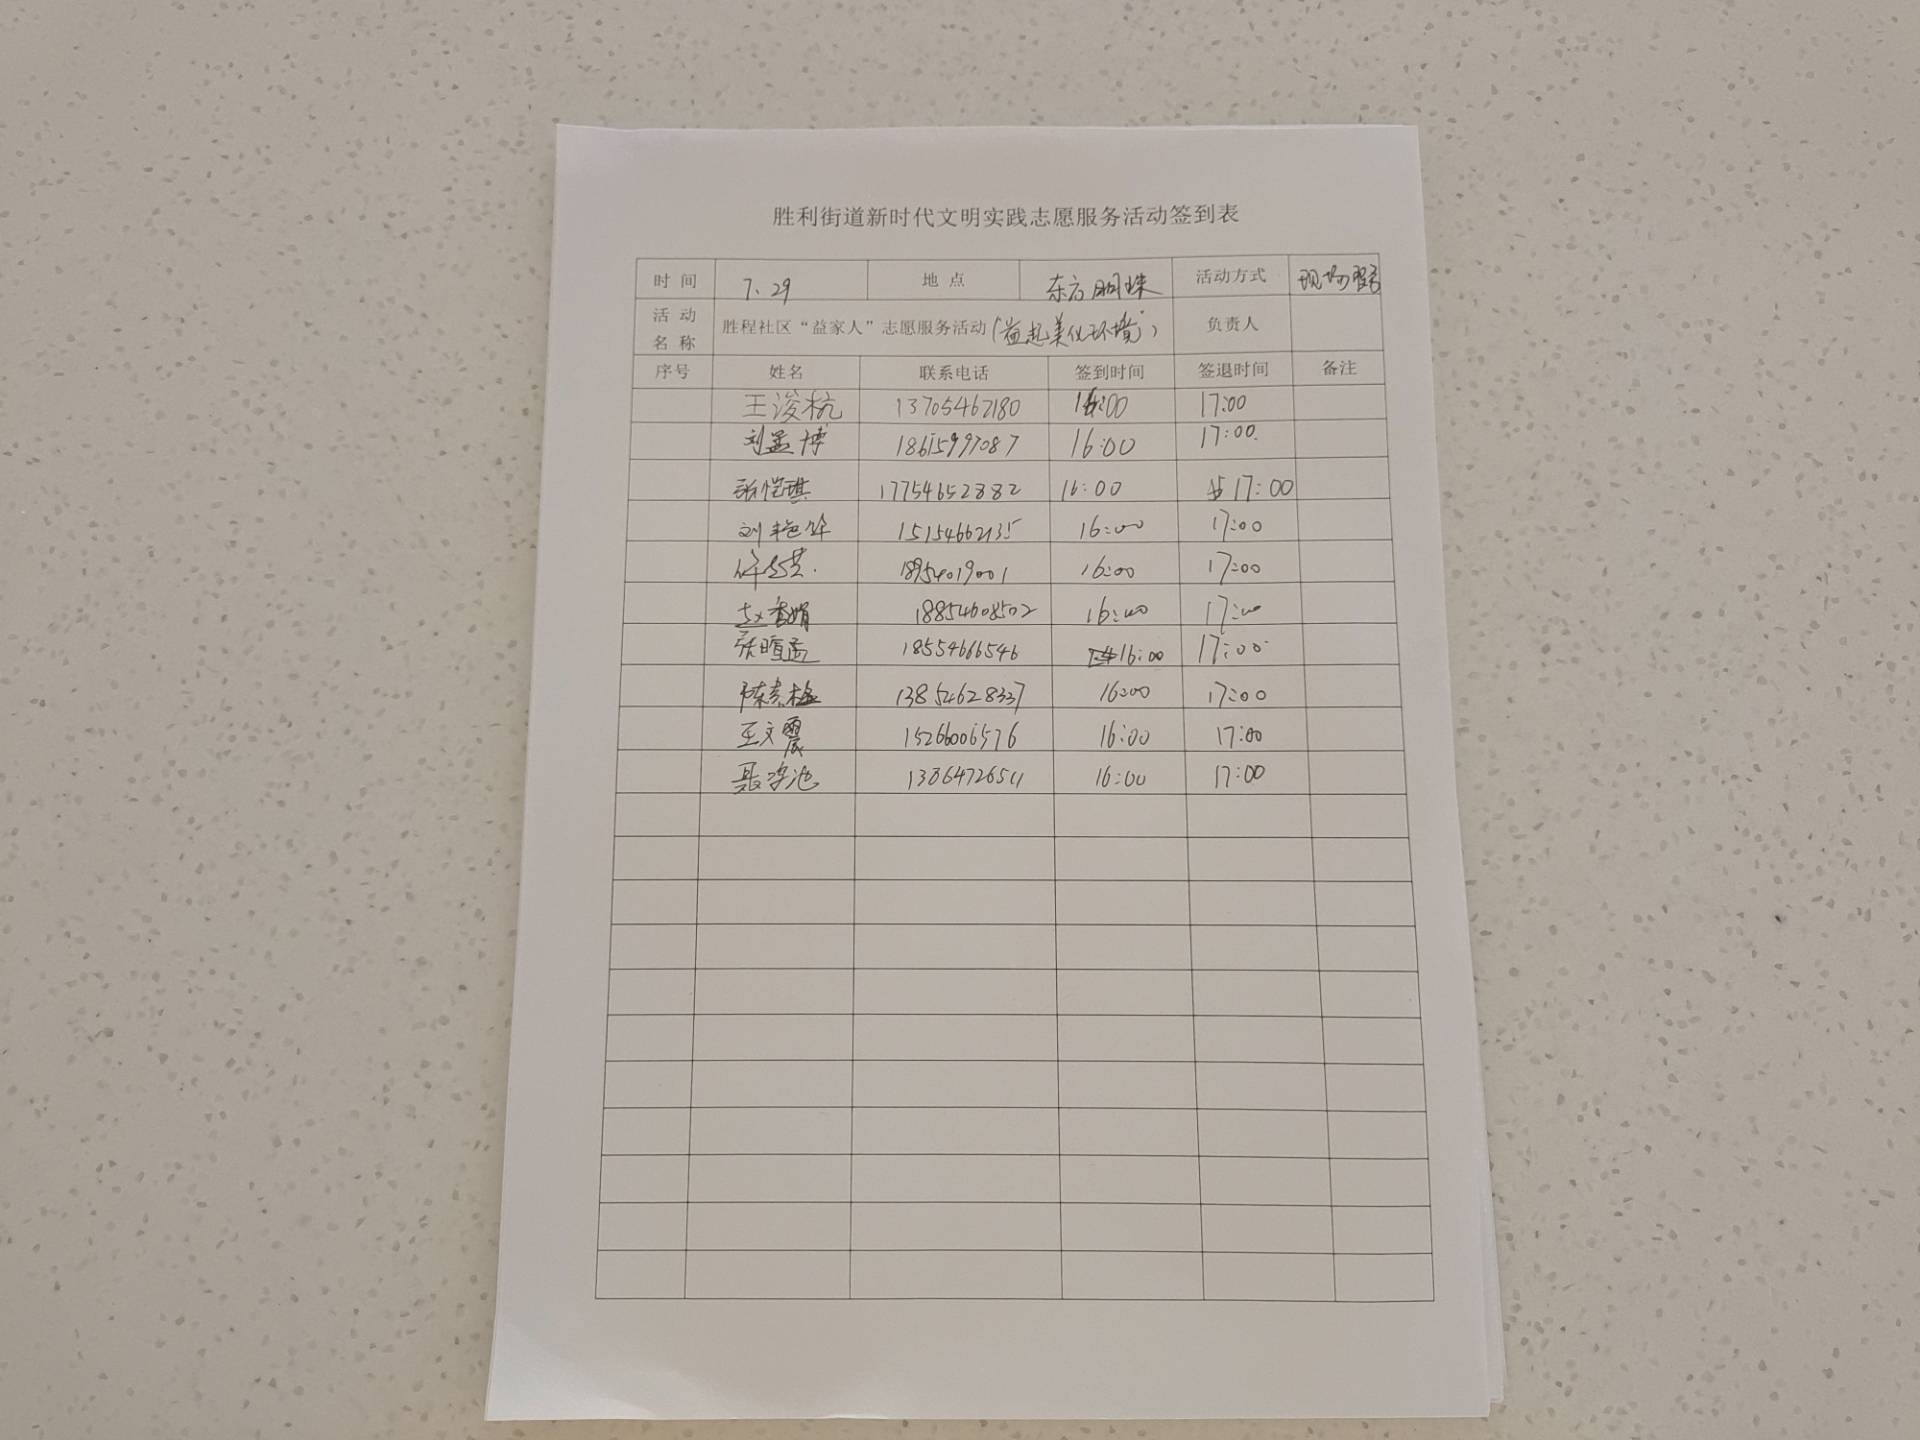 胜利街道新时代文明实践志愿服务活动签到表
时间 7.29 地点 东方明珠 活动方式 现场
活动名称 胜程社区“益家人”志愿服务活动（“益起美化环境”） 负责人
序号 姓名 联系电话 签到时间 签退时间 备注
王浚杭 13705462180 16:00 17:00
刘孟博 18615997087 16:00 17:00
张恺琪 17754652882 16:00 17:00
刘艳华 15154662135 16:00 17:00
18954019001 16:00 17:00
赵香娟 18854608502 16:00 17:00
张暄孟 18554666546 16:00 17:00
陈素梅 13854628337 16:00 17:00
王文震 15266006576 16:00 17:00
聂 池 13864726511 16:00 17:00